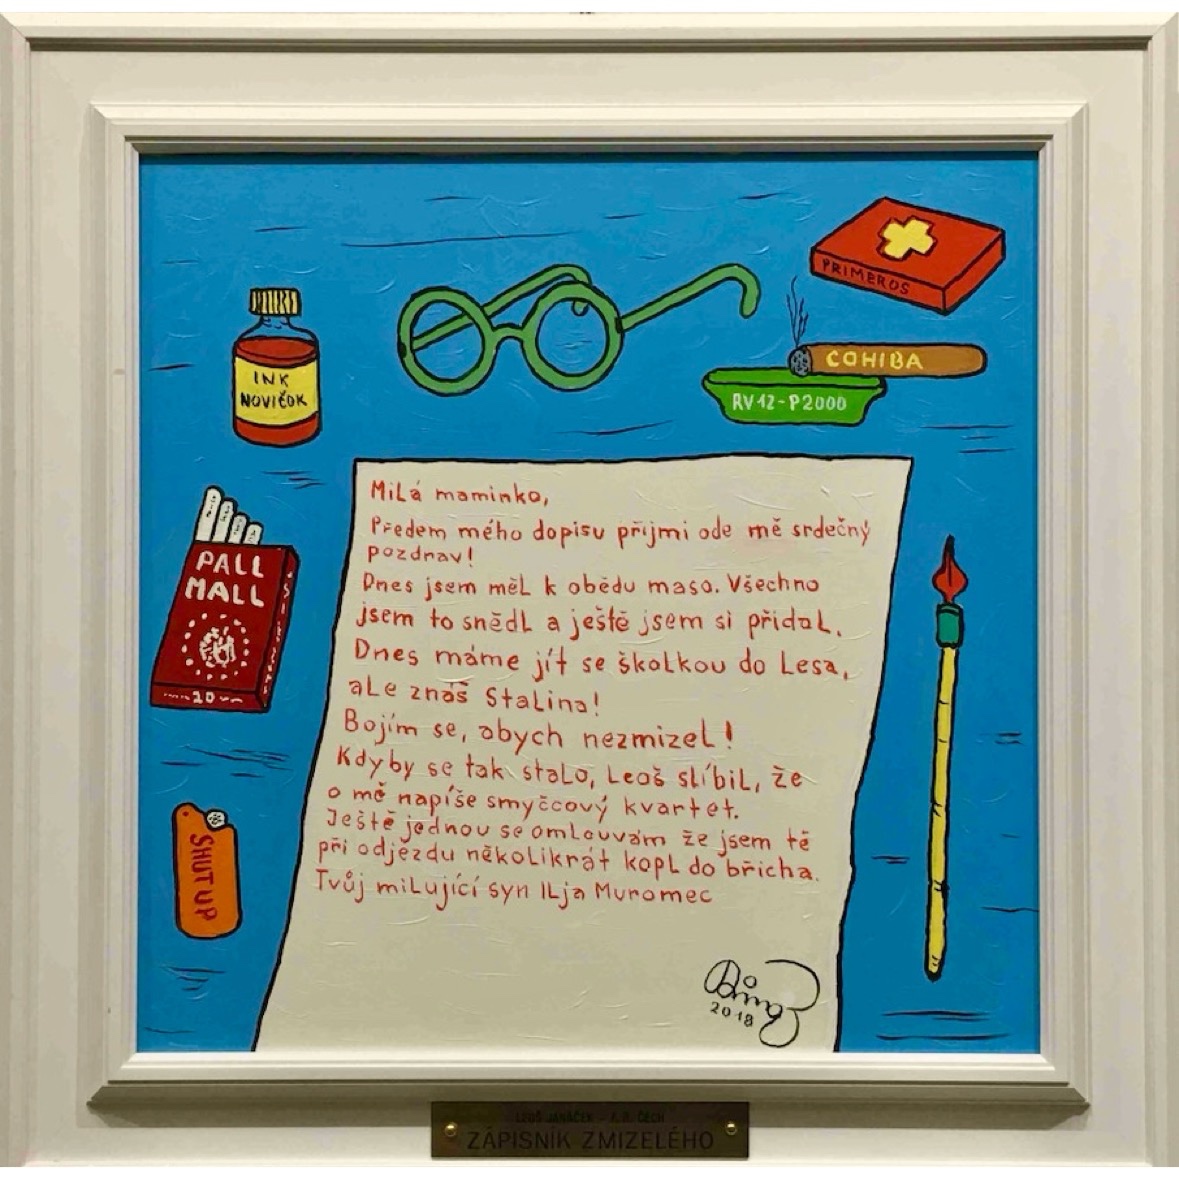 PRIMEROS
COHIBA
RV12-P2000
INK
NOVIČOK
PALL
MALL
20
SHUT UP
Milá maminko,
Předem mého dopisu přijmi ode mě srdečný
pozdrav!
Dnes jsem měl k obědu maso. Všechno
jsem to snědl a ještě jsem si přidal.
Dnes máme jít se školkou do lesa,
ale znáš Stalina!
Bojím se, abych nezmizel!
Kdyby se tak stalo, Leoš slíbil, že
o mě napíše smyčcový kvartet.
Ještě jednou se omlouvám že jsem tě
při odjezdu několikrát kopl do břicha.
Tvůj milující syn Ilja Muromec
2018
LEOŠ JANÁČEK – F. D. ČECH
ZÁPISNÍK ZMIZELÉHO